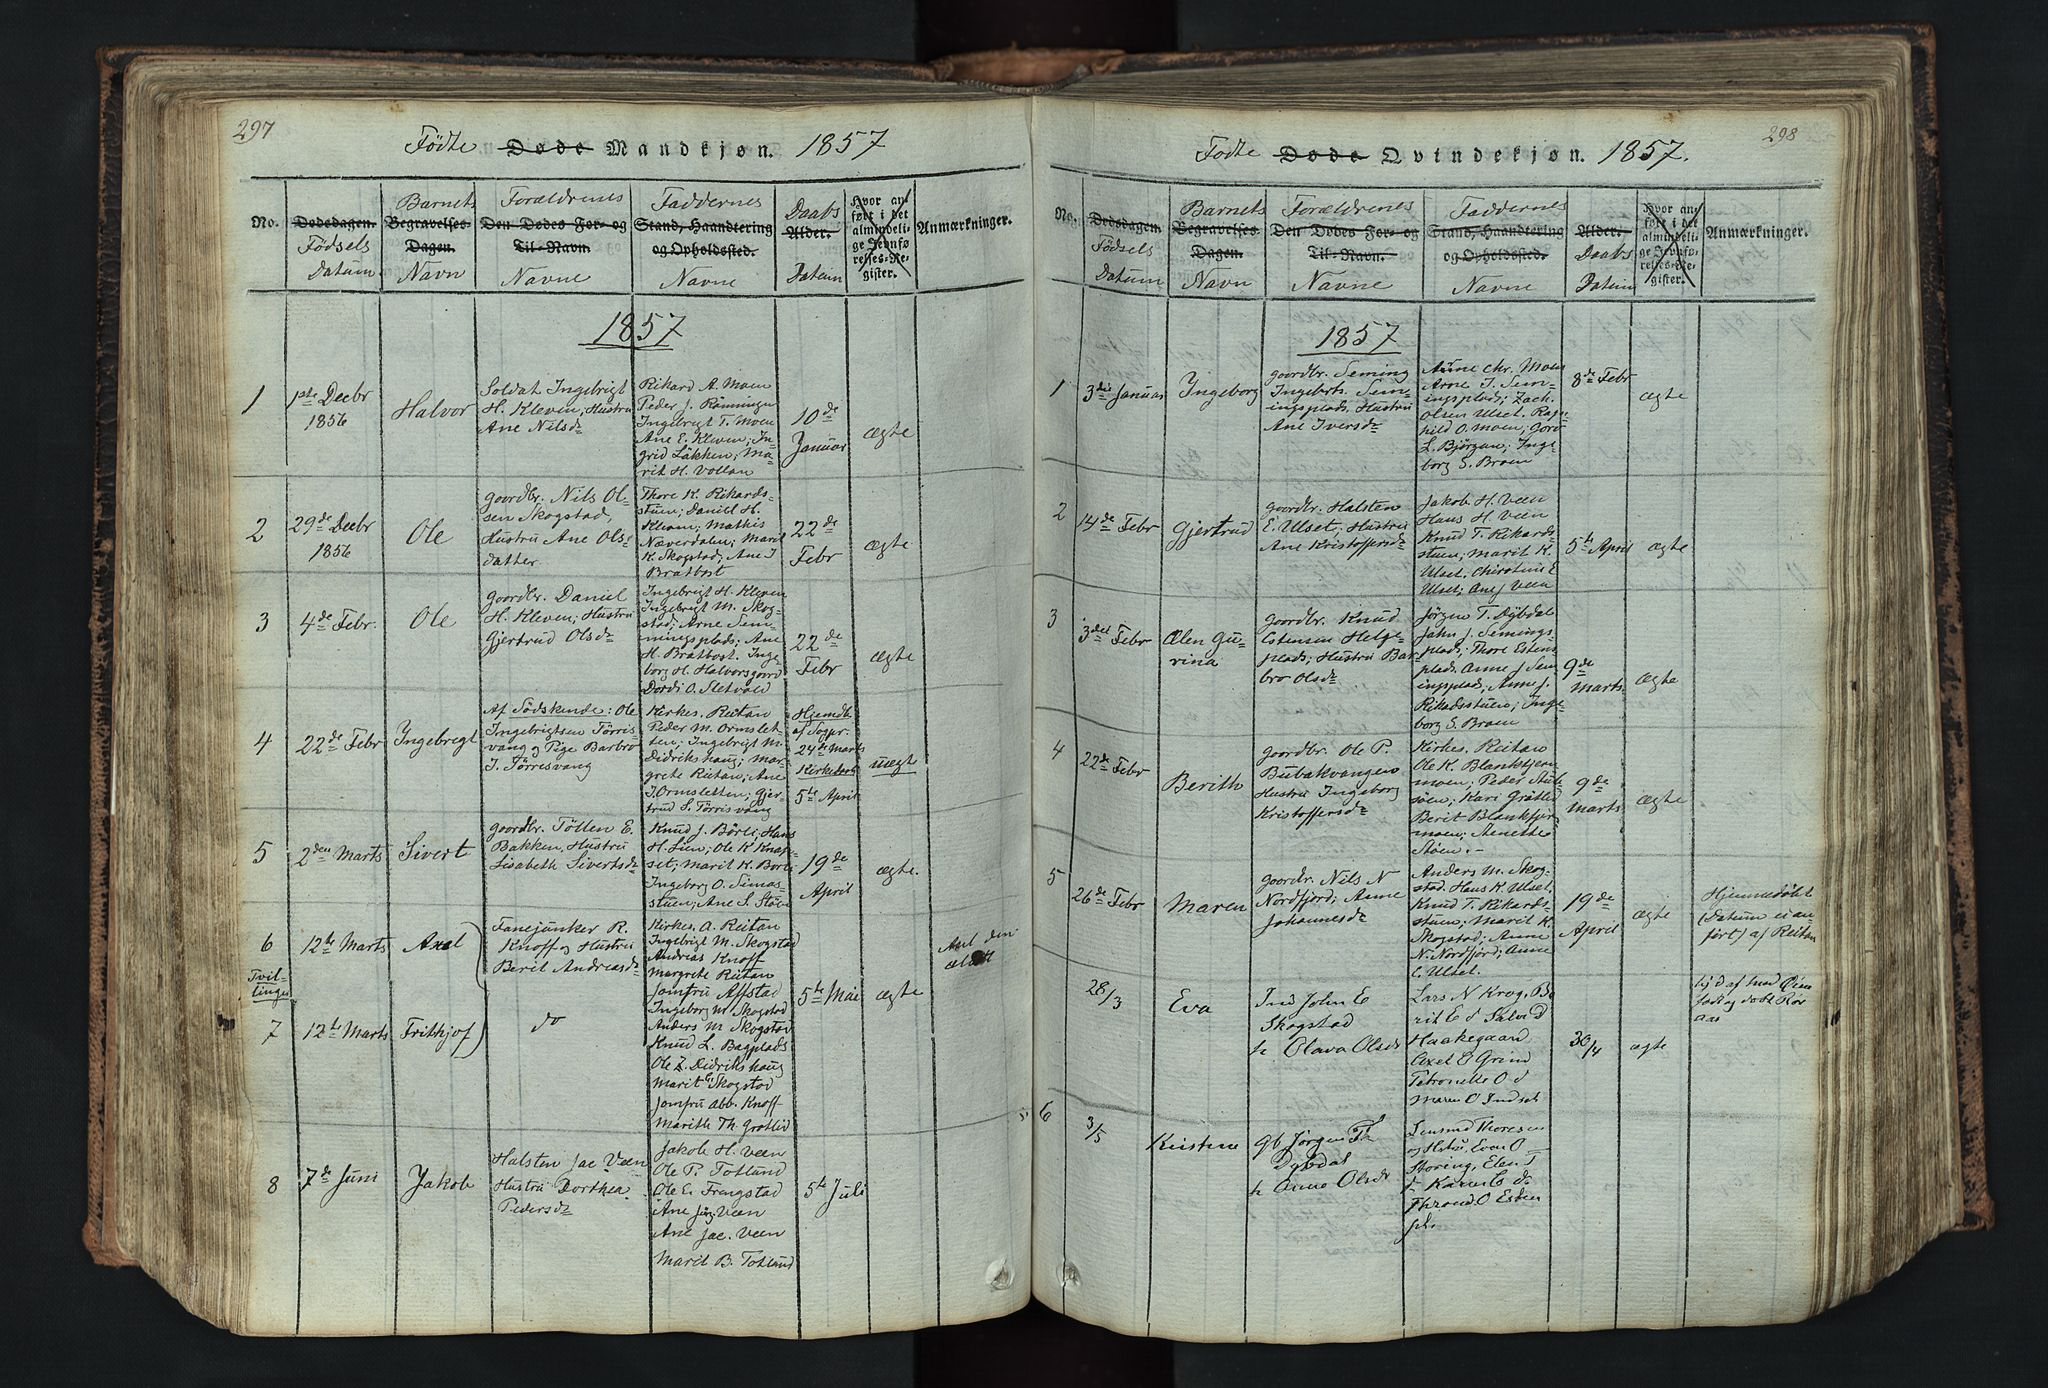 297
Fødte Døde Mandkjøn. 1857
No.
Dødsdagen.
Fødsels
Datum
Barnets
Begravelses-
Dagen.
Navn
Forældrenes
Den Dødes For- og
Til-Navn.
Navne
Faddernes
Stand, Haandtering
og Opholdssted.
Navne
Daabs
Alder.
Datum
Hvor an-
ført i det
almindeli-
ge Jevnfø-
relses-Re-
gister.
Anmærkninger.
1857
1
1ste Decbr
1856
Halvor
Soldat Ingebrigt
H. Kleven; Hustru
Ane Nilsdr
Rikard A. Moen
Peder J. Rönningen
Ingebrigt T. Moen
Ane E. Kleven; In-
grid Løkken; Ma-
rit H. Vollan
10de
Januar
ægte
2
29de Decbr
1856
Ole
Goordbr. Nils Ol-
sen Skogstad,
Hustru Ane Ols-
datter
Thore K. Rikards-
stuen; Daniel H.
Kleven; Mathis
Næverdalen; Marit
K. Skogstad; Ane I
Bratbost
22de
Febr
ægte
3
4de Febr.
Ole
Goordbr. Daniel
H. Kleven; Hustru
Gjertrud Olsdr
Ingebrigt H. Kleven
Ingebrigt M. Skog-
stad; Arne Sem-
mingsplads; Ane
H. Bratbost. Inge-
borg H. Halvorsgoord
Dordi O. Sletvold
22de
Febr
ægte
4
22de Febr
Ingebrigt
Af Södskende: Ole
Ingebrigtsen Törris-
vang og Pige Barbro
I. Törrisvang
Kirkes. Reitan
Peder M. Ormslet-
ten; Ingebrigt M.
Didrikshaug; Mar-
grete Reitan; Ane
I. Ormsletten; Gjer-
trud S. Törrisvang
Hjemdbt
af Sogpr.
24de Marts
Kirkedaab
5te April
uægte
5
2den Marts
Sivert
Goordbr. Tötten E.
Bakken, Hustru
Lisabeth Sivertsdr
Knud J. Börli; Hans
H. Lien; Ole K Knap-
set; Marit K. Borli
Ingeborg O. Simas-
stuen; Ane S. Stöen
19de
April
ægte.
6
Tvil-
linger
12te Marts
Axel
Fanejunker R.
Knoff og Hustru
Beril Andreasdr
Kirkes. A. Reitan
Ingebrigt M. Skogstad
Andreas Knoff
Margrete Reitan
Jomfru Affstad
Ingeborg M Skogstad
5te Mai
ægte
Axel den
ældst
7
12te Marts
Frithjof
do
Anders M Skogstad
Knud L. Bagplads
Ole Z. Didrikshaug
Marit G. Skogstad
Jomfru Abb. Knoff
Marith Th. Grøtlid
8
7de Juni
Jakob
Halsten Jac Veen
Hustru Dorthea
Pedersdr
Jakob H. Veen
Ole P. Totland
Ole E. Frengstad
Ane Jörg. Veen
Ane Jac. Veen
Marit B. Totlund
5te Juli
298
Fødte Døde Qvindekjøn. 1857.
No.
Dødsdagen.
Fødsels
Datum
Barnets
Begravelses-
Dagen.
Navn
Forældrenes
Den Dødes For- og
Til-Navn.
Navne
Faddernes
Stand, Haandtering
og Opholdssted.
Navne
Alder.
Daabs
Datum
Hvor an-
ført i det
almindeli-
ge Jevnfø-
relses-Re-
gister.
Anmærkninger.
1857
1
3die Januar
Ingeborg
Goordbr. Seming
Ingebrts. Sem-
ingsplads, Hustru
Ane Iversdr
Arne Chr. Moen
Arne I. Sem-
ingsplads; Zach.
Olsen Ulset. Rag-
nild O. Moen; Goro
L. Bjørgan; Inge-
borg S. Broen
8de Febr
ægte
2
14de Febr
Gjertrud
Goordbr. Halsten
E. Ulset; Hustru
Ane Kristoffersdr
Jakob H. Veen
Hans H. Veen
Knud T. Rikards-
stuen; Marit K.
Ulset. Christine E
Ulset; Ane J Veen
5te April
ægte
3
3die Febr
Ælen Gu-
rina
Goordbr. Knud
Estensen Helge-
plads; Hustru Bar-
bro Olsdr
Jørgen T. Dybdal
John J. Semings-
plads; Thore Estens-
plads. Anne J Sem-
ingsplads; Anne J.
Rikadsstuen; Inge-
borg S. Broen
9de
Marts
ægte
4
22de Febr
Berith
Goordbr. Ole P.
Bubakvangen
Hustru Ingeborg
Kristoffersdr
Kirkes. Reitan
Ole K. Blankstjern-
moen; Peder Aule-
stöen; Kari Grøtlid
Berit Blankstjern-
moen; Anetthe
Støen. -
9de
Marts
ægte
5
26de Febr
Maren
Goordbr. Nils N
Nordfjord; Anne
Johannesdr
Anders M. Skog-
stad. Hans K. Ulset.
Knud T. Rikards-
stuen; Marit K.
Skogstad; Anne
N. Nordfjord; Anne
E. Ulset.
19de
April
ægte
Hjemmedöbt
(Datum ei an-
fört) af Reitan
28/3
Eva
Ind John E
Skogstad
h Olava Olsdr
Lars N Krog, Be-
rit E d Salvo
Haakegaan
Axel E Grind
Petronelle O d
Maren O Indset
30/4
ægte
6
3/5
Kristine
gb Jørgen Th
Dybdal
h Anne Olsdr
Thoresen
og Hstru, Even O
Storing, Elen
d Karen E d
Thrond O Esten
pl.